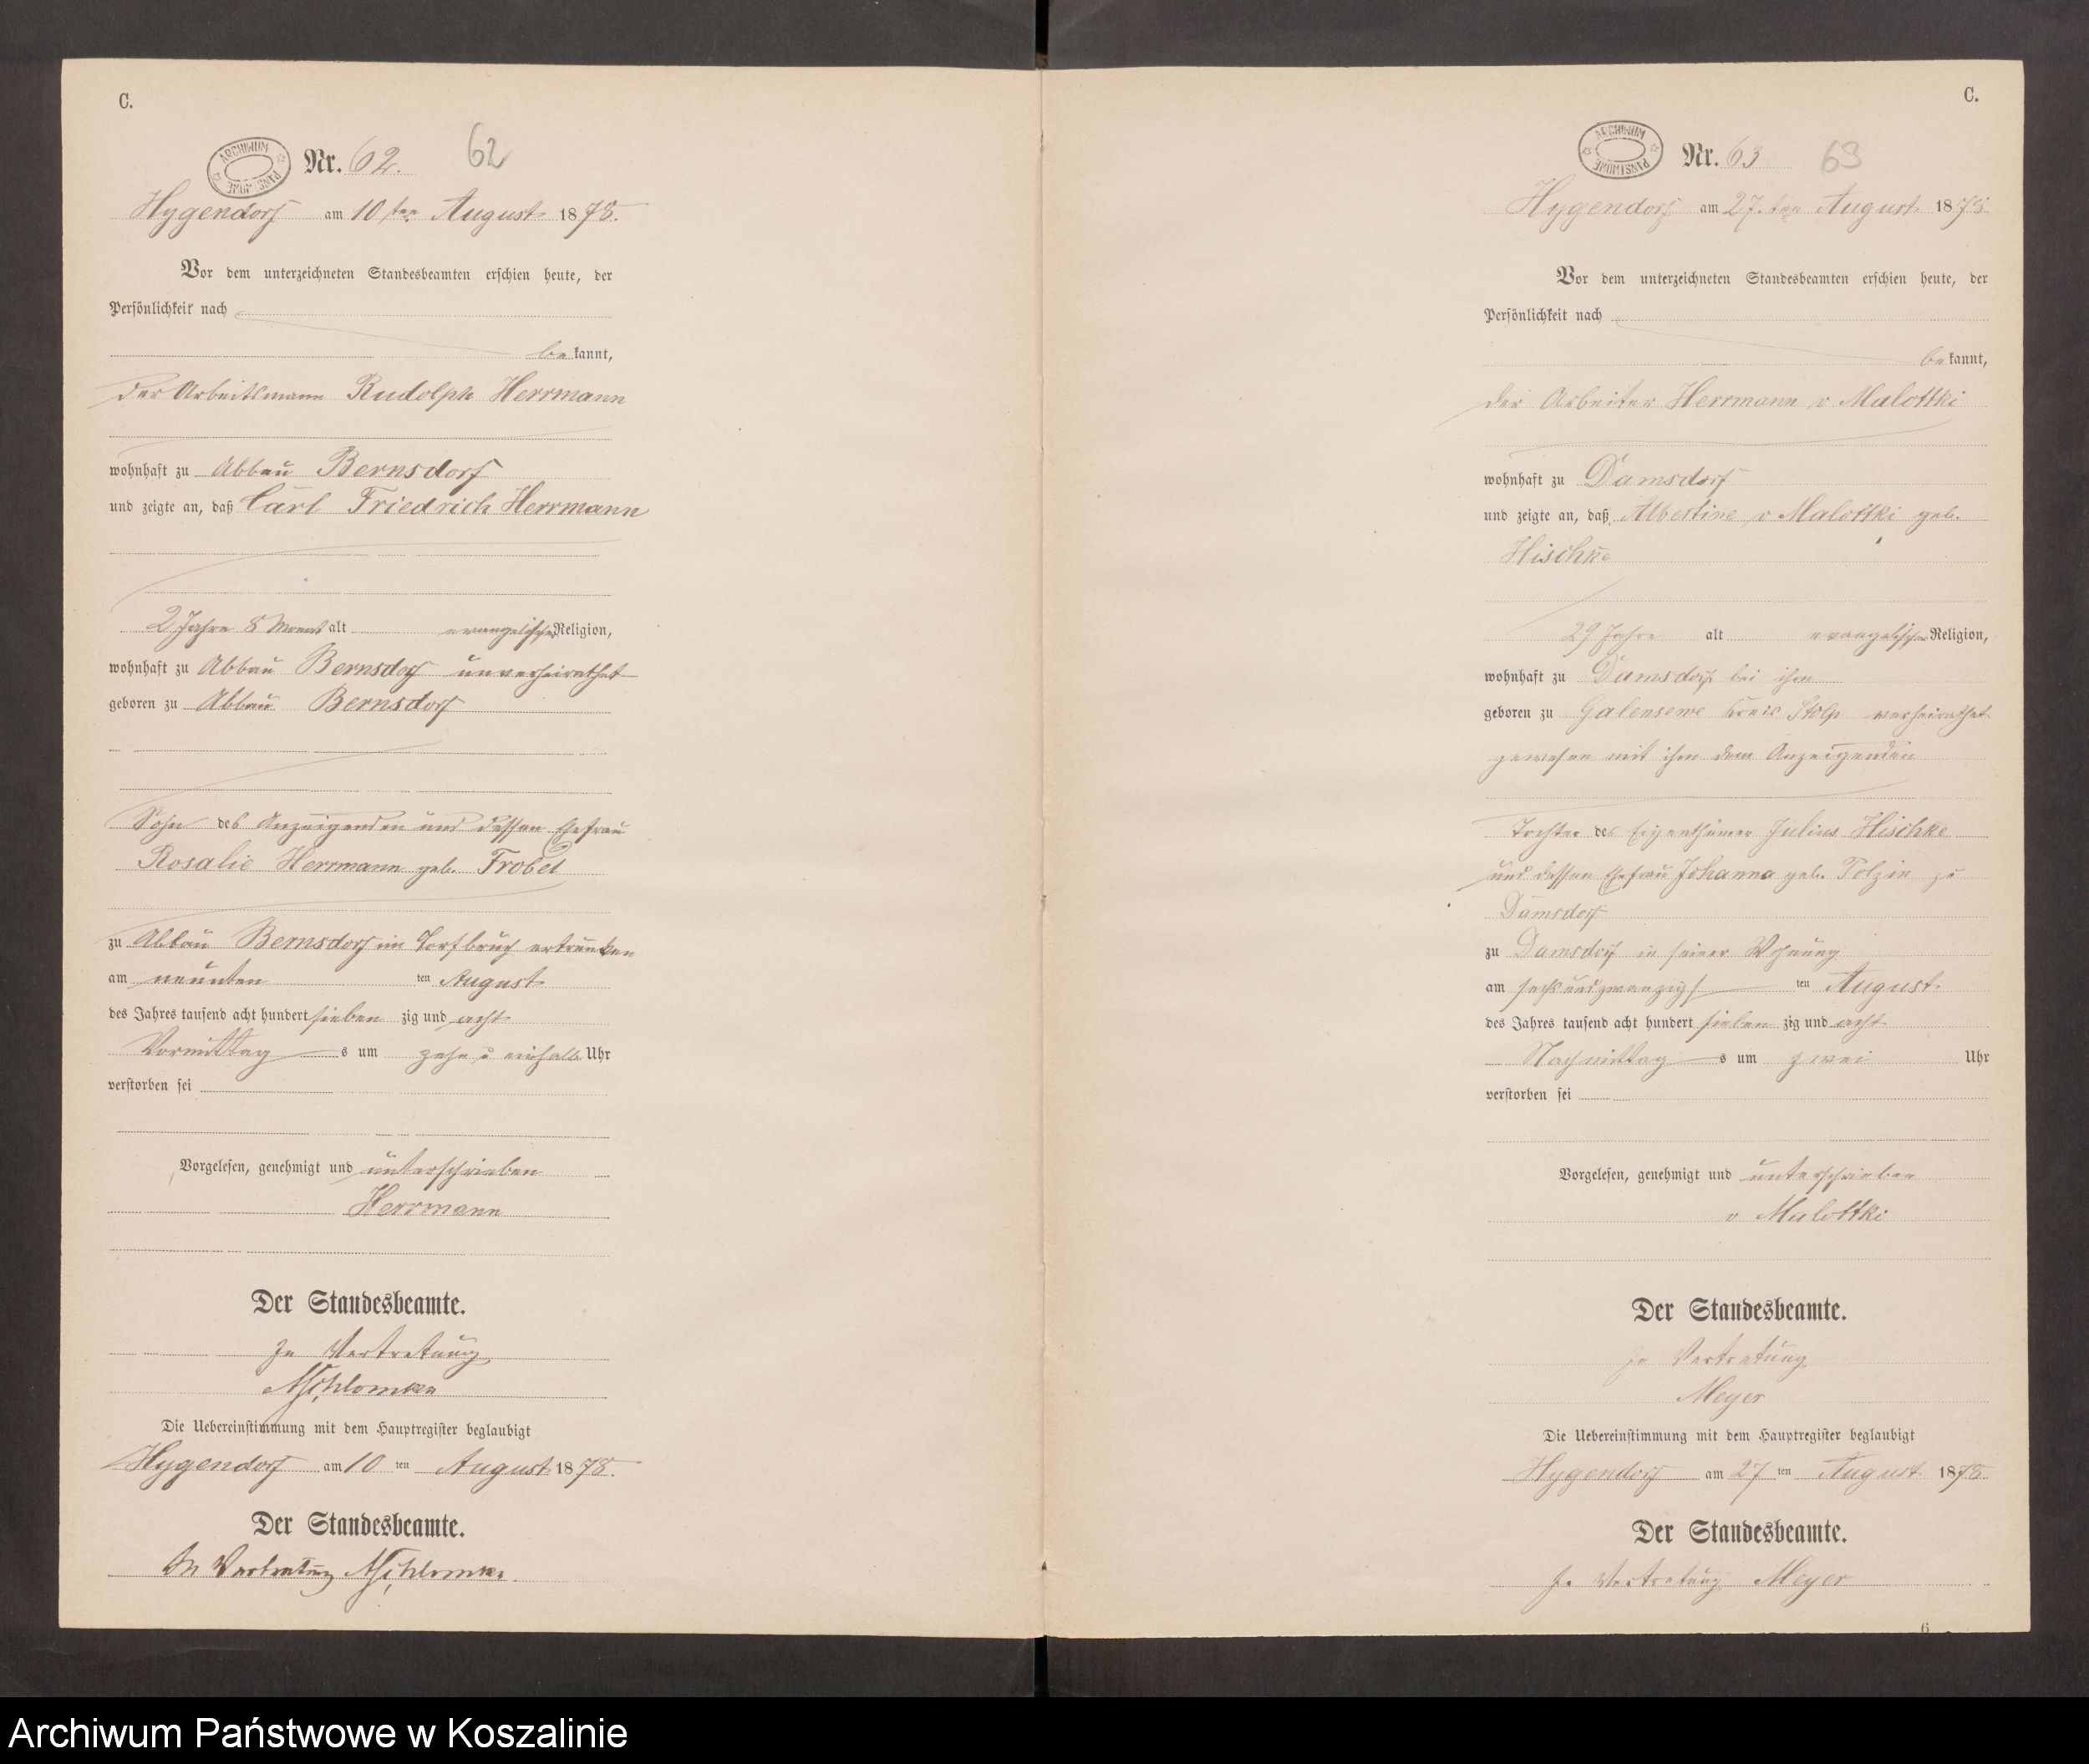 C.
ARCHIWUM PAŃSTWOWE
Nr. 62.
62
Hygendorf am 10 ten August 1878.
Vor dem unterzeichneten Standesbeamten erschien heute, der
Persönlichkeit nach
be kannt,
der Arbeitsmann Rudolph Herrmann
wohnhaft zu Abbau Bernsdorf
und zeigte an, daß Carl Friedrich Herrmann
2 Jahre 8 Monat alt evangelischer Religion,
wohnhaft zu Abbau Bernsdorf unverheirathet
geboren zu Abbau Bernsdorf
Sohn des Anzeigenden und dessen Ehefrau
Rosalie Herrmann geb. Frobel
zu Abbau Bernsdorf im Torfbruch ertrunken
am neunten ten August
des Jahres tausend acht hundert sieben zig und acht
Vormittag s um zehn u einhalb Uhr
verstorben sei
Vorgelesen, genehmigt und unterschrieben
Herrmann
Der Standesbeamte.
In Vertretung
Die Uebereinstimmung mit dem Hauptregister beglaubigt
Hygendorf am 10 ten August 1878.
Der Standesbeamte.
In Vertretung
C.
ARCHIWUM PAŃSTWOWE
Nr. 63
63
Hygendorf am 27. ten August 1878
Vor dem unterzeichneten Standesbeamten erschien heute, der
Persönlichkeit nach
be kannt,
der Arbeiter Herrmann v Malottki
wohnhaft zu Damsdorf
und zeigte an, daß Albertine v Malottki geb.
Hischke
29 Jahre alt evangelischer Religion,
wohnhaft zu Damsdorf bei ihm
geboren zu Galensewe Kreis Stolp verheirathet
gewesen mit ihm dem Anzeigenden
Tochter des Eigenthümer Julius Hischke
und dessen Ehefrau Johanna geb. Tolzin zu
Damsdorf
zu Damsdorf in seiner Wohnung
am sechsundzwanzigs ten August
des Jahres tausend acht hundert sieben zig und acht
Nachmittag s um zwei Uhr
verstorben sei
Vorgelesen, genehmigt und unterschrieben
v Malottki
Der Standesbeamte.
In Vertretung
Meyer
Die Uebereinstimmung mit dem Hauptregister beglaubigt
Hygendorf am 27 ten August 1878
Der Standesbeamte.
In Vertretung Meyer
6
Archiwum Państwowe w Koszalinie